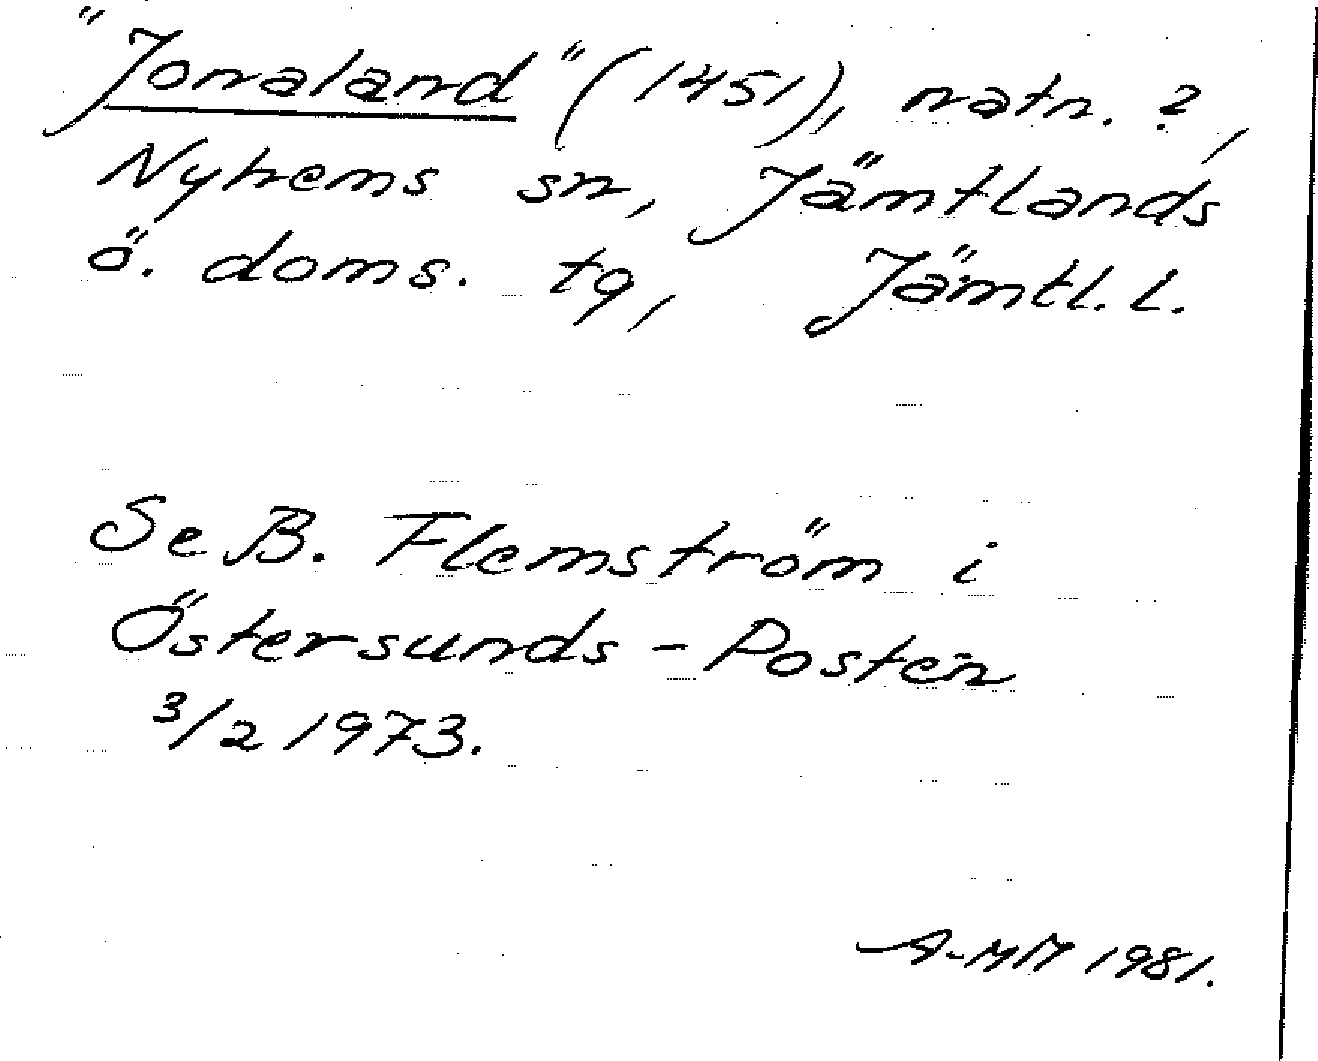 "Jonaland" (1451), natn. ?,
Nyhems sn, Jämtlands
ö. doms. tg, Jämtl. l.
Se B. Flemström i
Östersunds-Posten
3/2 1973.
A-MM 1981.